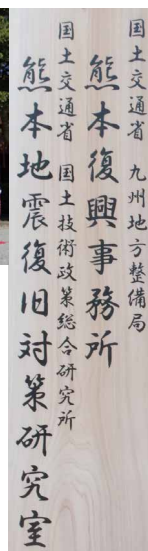 国土交通省 九州地方整備局
熊本復興事務所
国土交通省 国土技術政策総合研究所
熊本地震復旧対策研究室